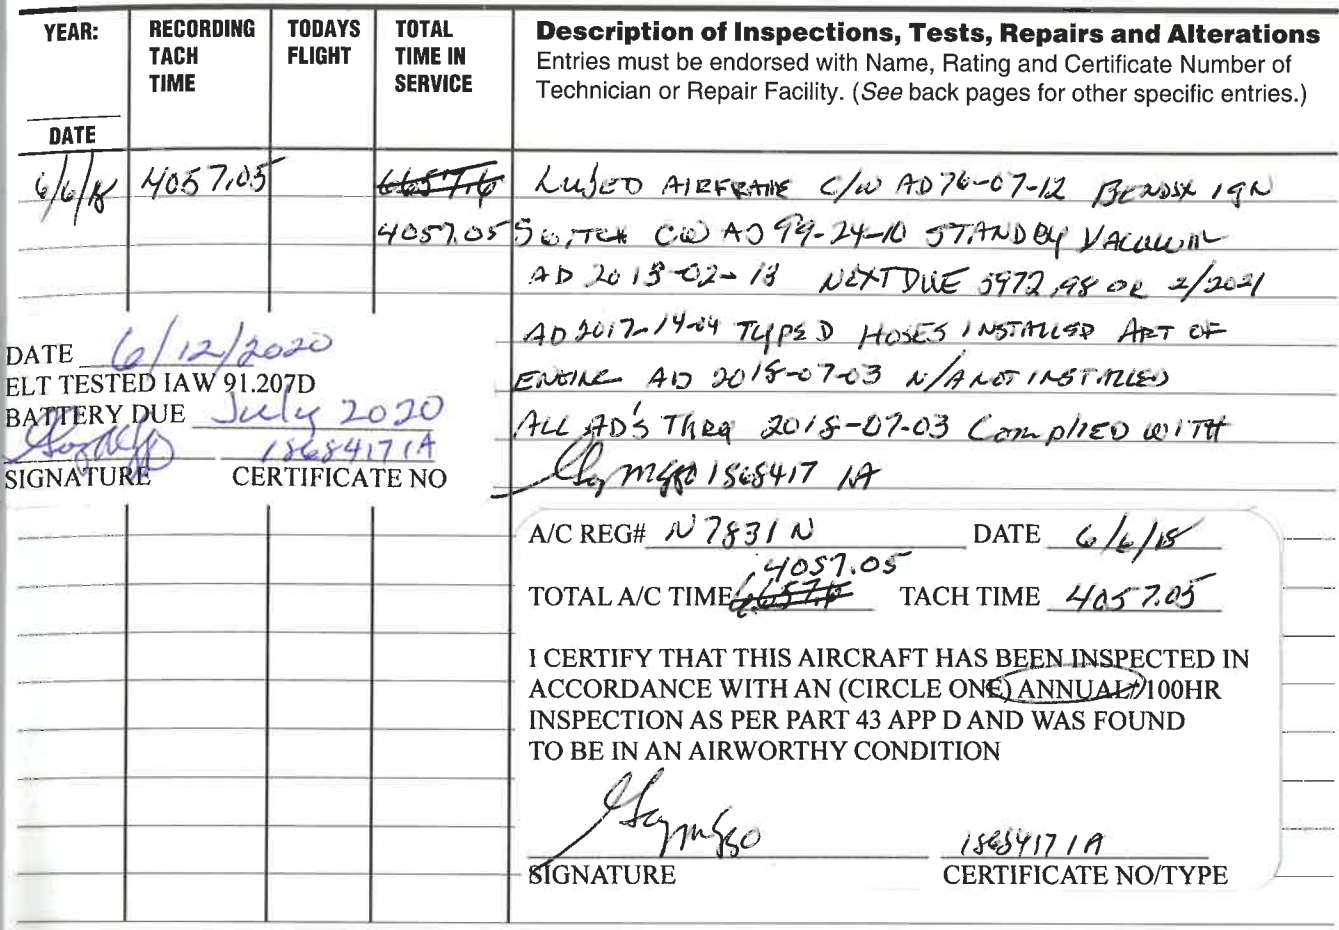 YEAR:
DATE
RECORDING
TACH
TIME
TODAYS
FLIGHT
TOTAL
TIME IN
SERVICE
Description of Inspections, Tests, Repairs and Alterations
Entries must be endorsed with Name, Rating and Certificate Number of
Technician or Repair Facility. (See back pages for other specific entries.)
6/6/18 4057.05 6657.6 LUBED AIRFRAME C/W AD 76-07-12 BENDIX IGN
4057.05 SWITCH CW AD 99-24-10 STANDBY VACUUM
AD 2013-02-13 NEXT DUE 5972.98 OR 2/2021
AD 2017-14-04 TYPE D HOSES INSTALLED ART OF
ENGINE AD 2018-07-03 N/A NOT INSTALLED
ALL AD'S THRU 2018-07-03 COMPLIED WITH
1868417 IA
DATE 6/12/2020
ELT TESTED IAW 91.207D
BATTERY DUE July 2020
1868417 IA
SIGNATURE CERTIFICATE NO
A/C REG# N7831N DATE 6/6/18
4057.05
TOTAL A/C TIME 6657.6 TACH TIME 4057.05
I CERTIFY THAT THIS AIRCRAFT HAS BEEN INSPECTED IN
ACCORDANCE WITH AN (CIRCLE ONE) ANNUAL/100HR
INSPECTION AS PER PART 43 APP D AND WAS FOUND
TO BE IN AN AIRWORTHY CONDITION
1868417 IA
SIGNATURE CERTIFICATE NO/TYPE